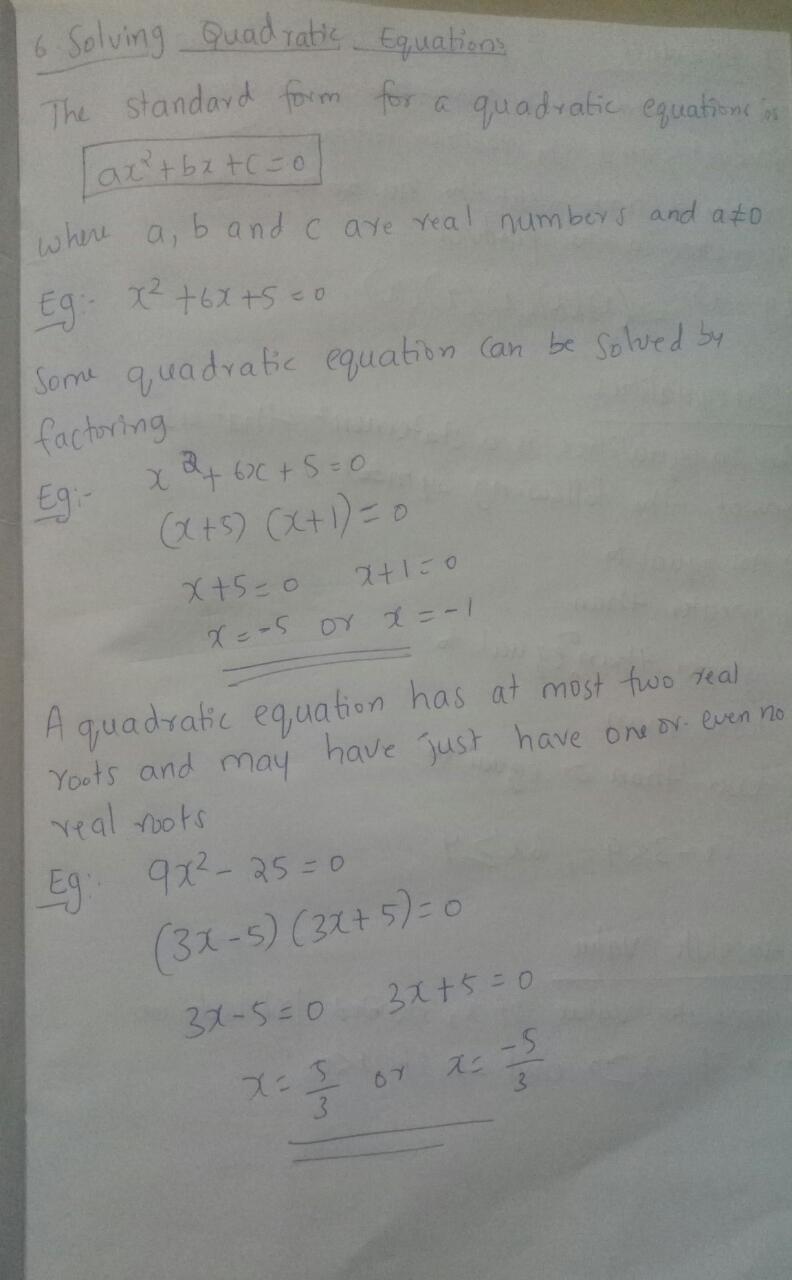 6 Solving Quadratic Equations
The standard form for a quadratic equations is
ax² + bx + c = 0
where a, b and c are real numbers and a≠0
Eg:- x² + 6x + 5 = 0
Some quadratic equation can be solved by
factoring
Eg:- x² + 6x + 5 = 0
(x+5) (x+1) = 0
x+5=0 x+1=0
x=-5 or x=-1
A quadratic equation has at most two real
roots and may have just have one or even no
real roots
Eg:- 9x² - 25 = 0
(3x-5) (3x+5) = 0
3x-5=0 3x+5=0
x = 5/3 or x = -5/3